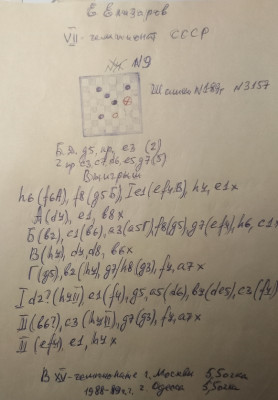 Е Елизаров
VII - чемпионат СССР
N9
Шашки N1 89г N 3157
g5, пр. e3 (2)
2 пр e3, c7, d6, e5, g7 (5)
Выигрыш
h6 (f6A), f8 (g5Б), Ie1 (ef4В), h4, e1x
A (d4), e1, b8x
Б (b2), c1 (b6), a3 (a5Г), f8 (g5), g7 (ef4), h6, c1x
В (h4), d4, d8, b6x
Г (g5), b2 (h4), g7/h8 (g3), f4, a7x
I d2? (h4II), e1 (f4), g5, a5 (d6), b4 (de5), c3 (f4)
II (b6?), c3 (h4III), g7 (g3), f4, a7x
III (ef4), e1, h4x
В XV - чемпионате г. Москвы 5,5 очка
1988-89г.г. г. Одесса 5,5 очка